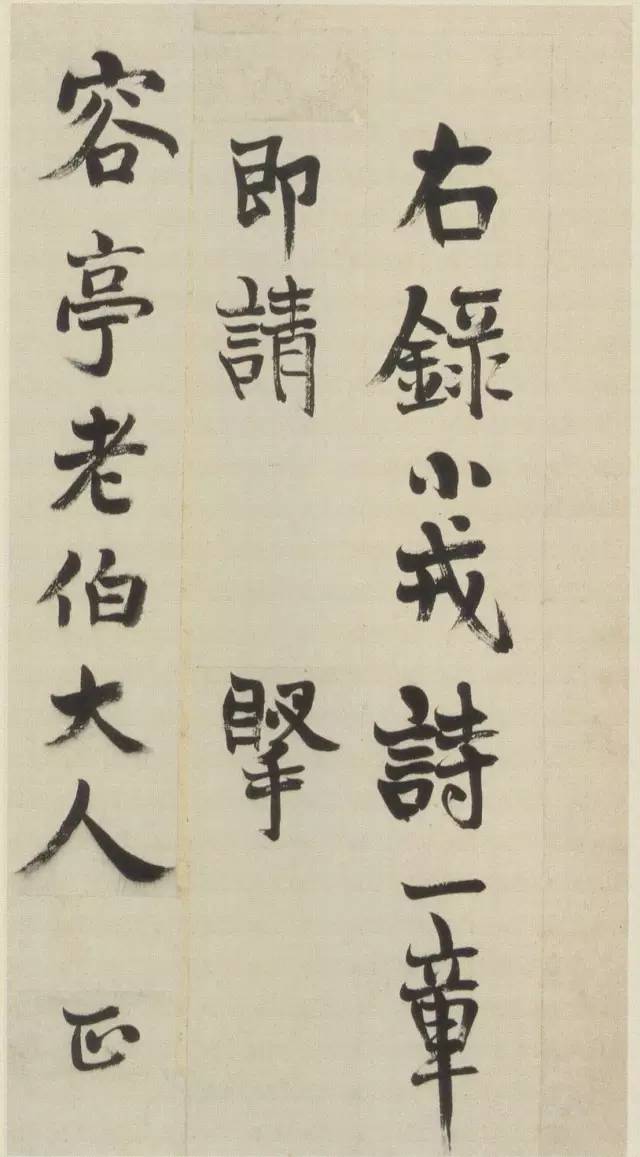 右錄小戎詩一章
即請 擥
容亭老伯大人 正